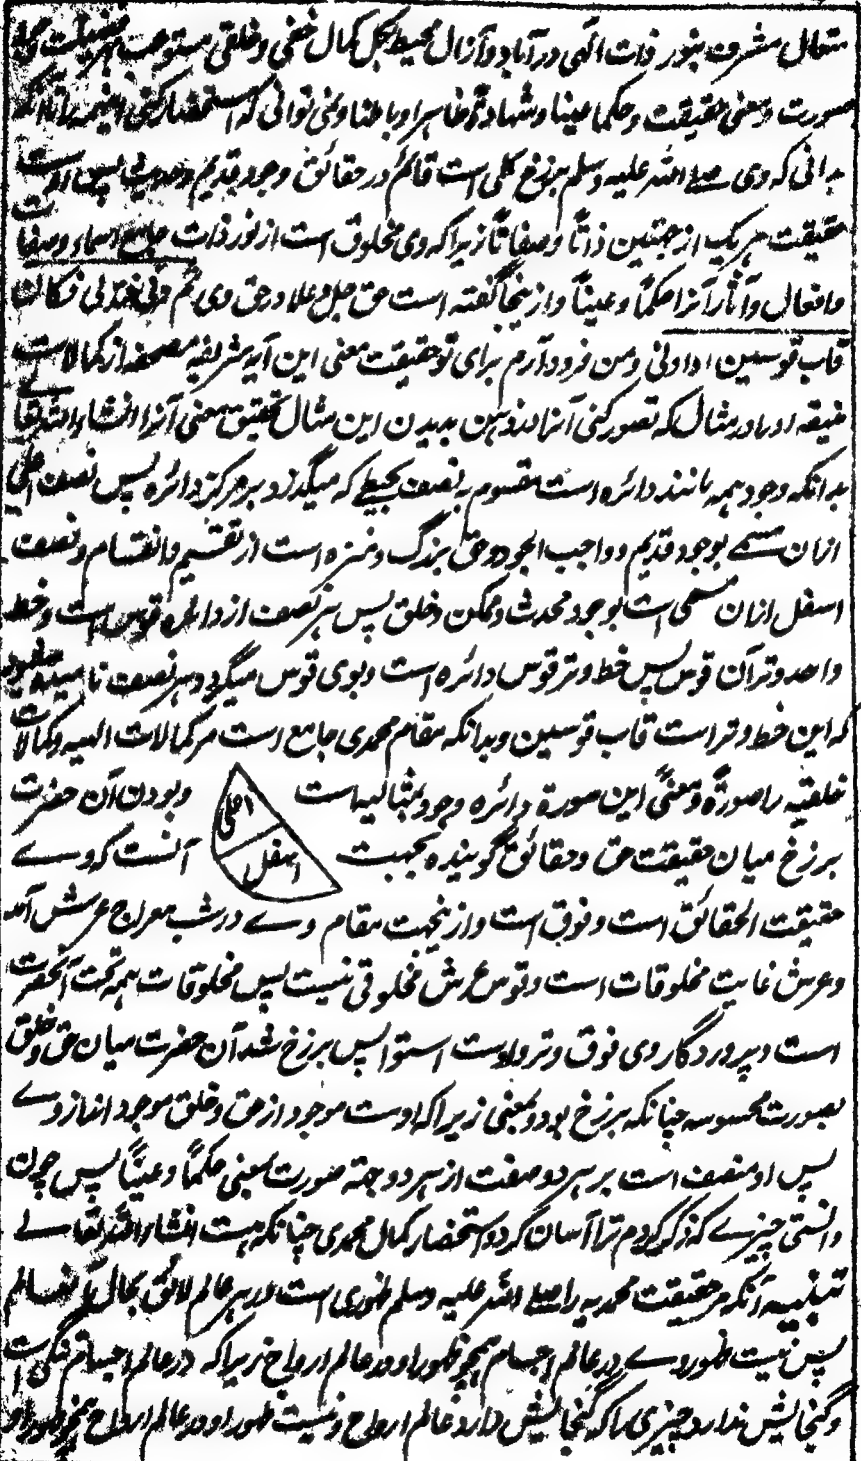 متعال مشرف بنور ذات الٰهی در آباد و آزال محیط بکل کمال خلقی و خلقی مستوجب هر فضیلت
صورت و معنی حقیقت و حکما عینا و شهادة ظاهرا و باطنا و نمی توانی که استحضار کنی اینهمه را تا آنکه
بدانی که وی صلی الله علیه وسلم برزخ کلی است قائم در حقائق وجود قدیم و حدیث پس اوست
حقیقت هر یک از جهتین ذاتًا و صفاتًا زیرا که وی مخلوق است از نور ذات جامع اسماء و صفات
و افعال و آثار آنرا حکمًا و عینًا و ازینجا گفته است حق جل و علا در حق وی ثم دنی فتدلی فکان
قاب قوسین او ادنی و من فرود آرم برای تو حقیقت معنی این آیه شریفه از کمالات
خلیقه او را در مثال که تصور کنی آنرا در ذهن بدیدن این مثال تحقیق معنی آنرا انشاء الله تعالی
بدانکه وجود همه مانند دائره است مقسوم به نصف بخطے که میگذرد بر مرکز دائره پس نصف اعلی
ازان مسمے بوجود قدیم و واجب الوجود و حق بزرگ و منزه است از تقسیم و انقسام و نصف
اسفل ازان مسمی است بوجود محدث و ممکن و خلق پس هر نصف از دائره قوس است و خط
واحد وتر آن قوس پس خط وتر قوس دائره است و بوی قوس میگردد هر نصف نامیده میشود
که این خط وتر است قاب قوسین و بدانکه مقام محمدی جامع است مر کمالات الهیه و کمالات
خلقیّه را صورةً و معنًی این صورة دائره وجود مثالیه است اعلی وبودن آن حضرت
برزخ میان حقیقت حق و حقائق گوینده بجهت اسفل آنست که وے
حقیقت الحقائق است و فوق است و ازینجهت مقام وے در شب معراج عرش آمد
و عرش غایت مخلوقات است و فوق عرش مخلوقی نیست پس مخلوقات همه تحت آنحضرت
است و پروردگار وی فوق و تر و اوست استوا پس برزخ شد آن حضرت میان حق و خلق
بصورت محسوسه چنانکه برزخ بود و بمعنی زیرا که اوست موجود از حق و خلق موجود اند از وے
پس او متصف است بر هر دو صفت از هر دو جهة صورت بمعنی حکمًا و عینًا پس چون
دانستی چیزے که ذکر کردم ترا آسان گردد استحضار کمال محمدی چنانکه هست انشاء الله تعالے
تنبیه آنکه مر حقیقت محمدیه را صلے الله علیه وسلم ظهوری است در هر عالم لائق بحال آن عالم
پس نیست ظهور وے در عالم اجسام همچو ظهور او در عالم ارواح زیرا که در عالم اجسام تنگی است
و گنجایش ندارد چیزی را که گنجایش دارد عالم ارواح و نیست ظهور او در عالم ارواح همچو ظهور او